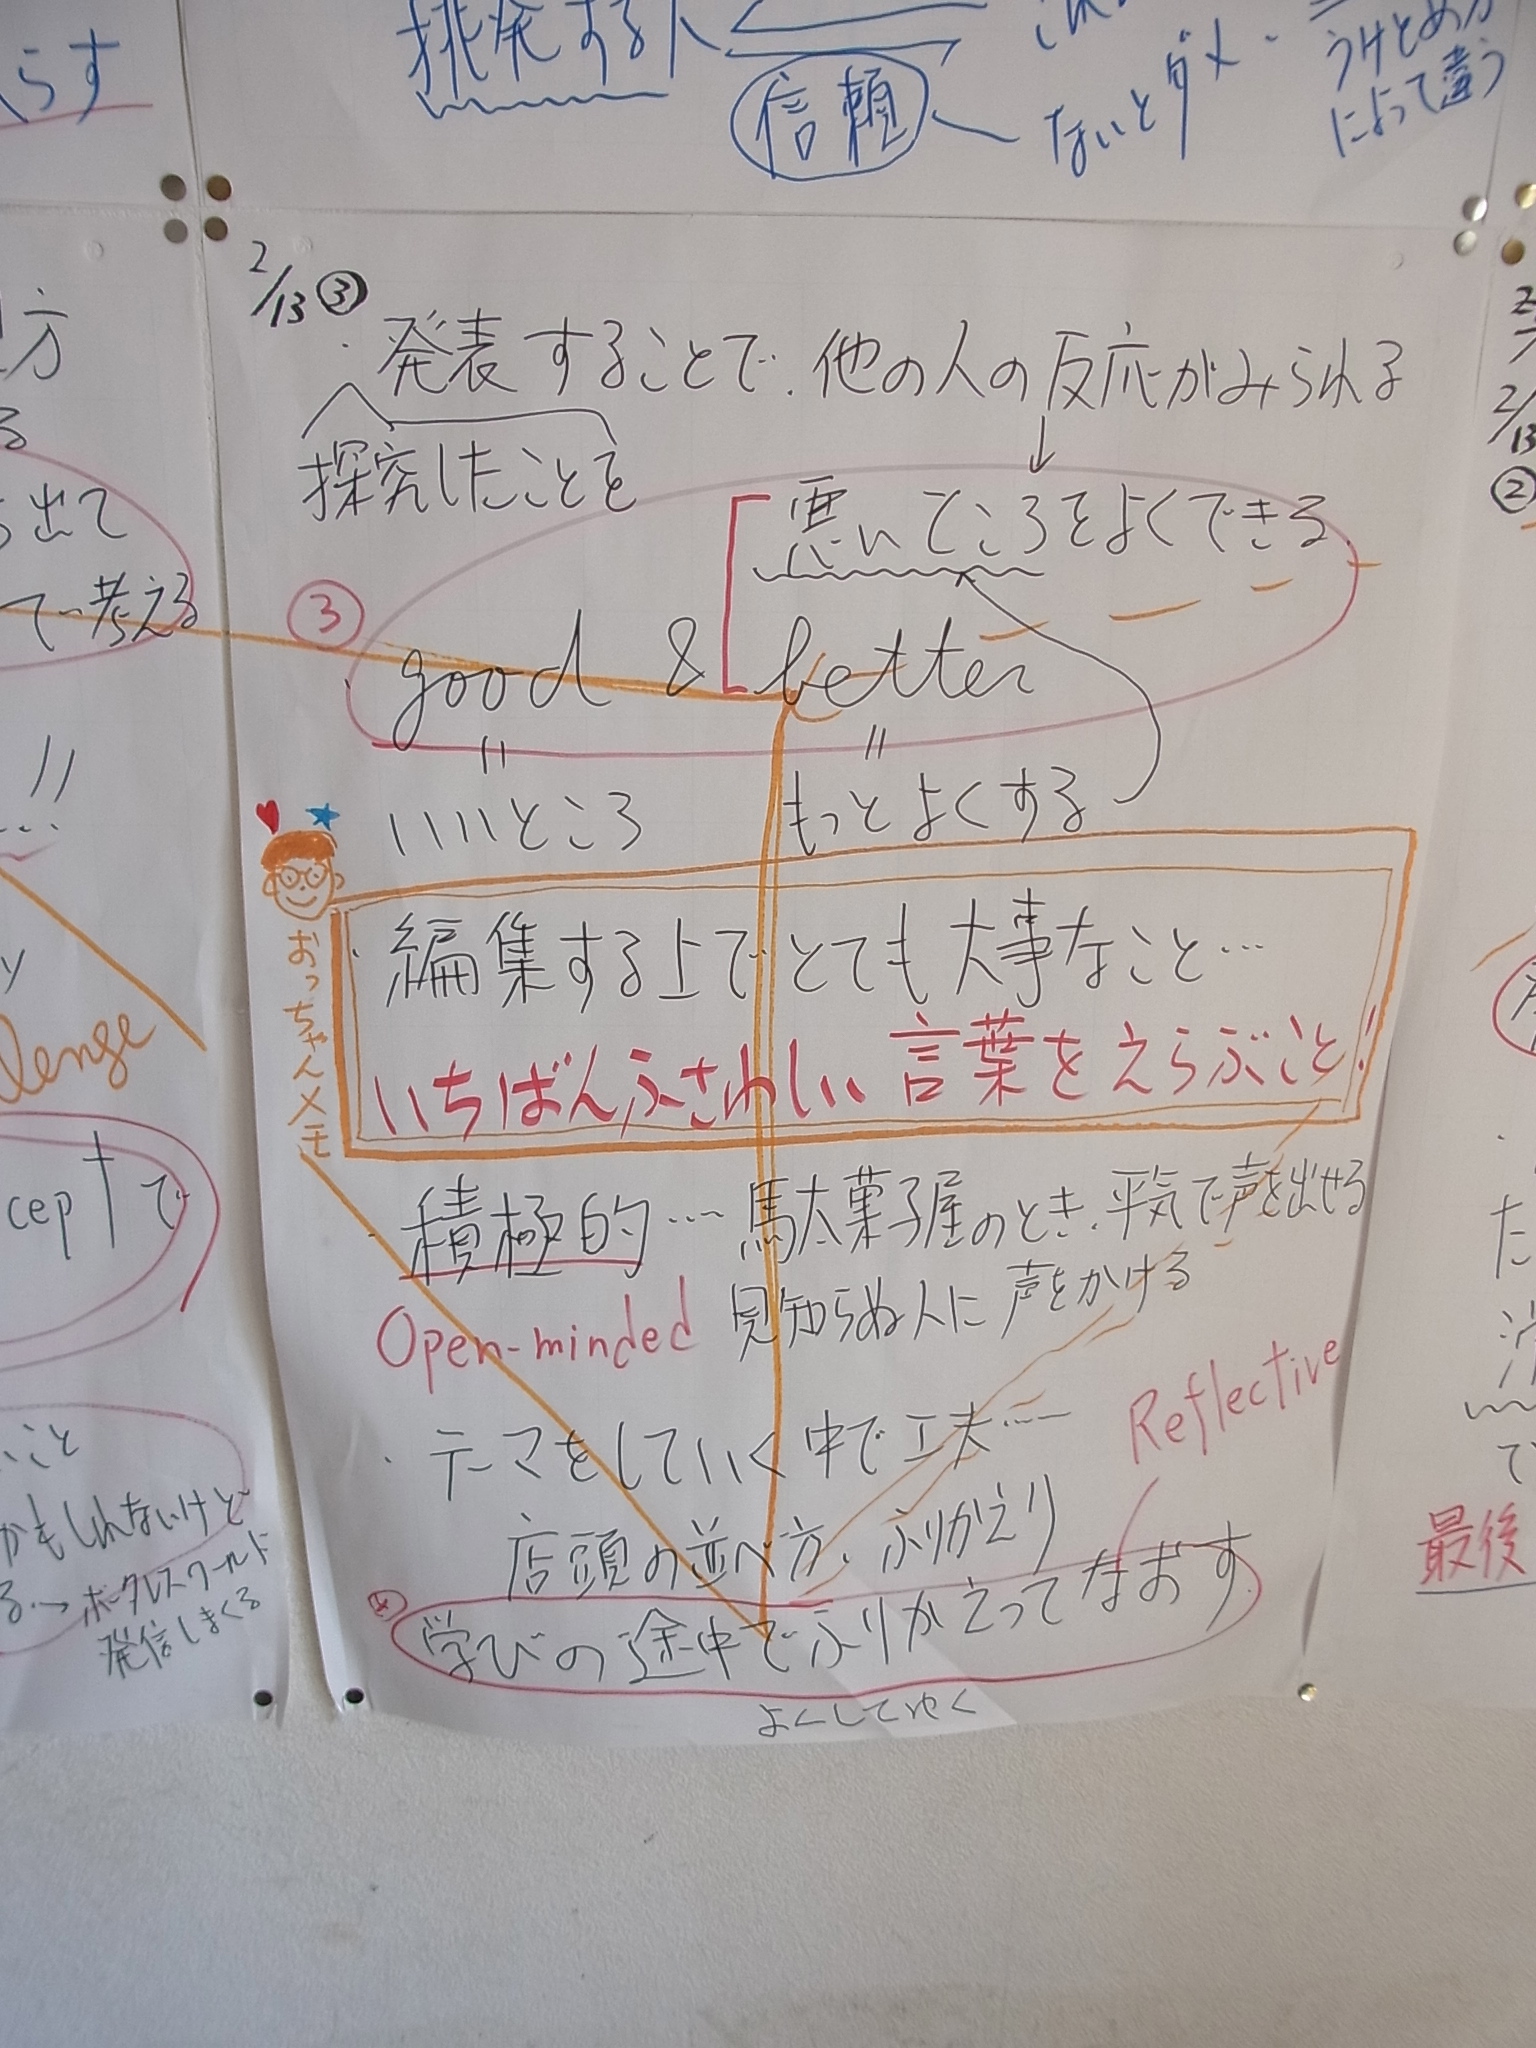 らす
挑発する人
信頼
ないとダメ
うけとめ方
によって違う
2/13 ③
・発表することで、他の人の反応がみられる
探究したことを
悪いところをよくできる
③
good & better
いいところ もっとよくする
おっちゃんメモ
・編集する上でとても大事なこと…
いちばんふさわしい言葉をえらぶこと!
・積極的…駄菓子屋のとき、平気で声を出せる
Open-minded 見知らぬ人に声をかける
Reflective
・テーマをしていく中で工夫…
店頭の並べ方、ふりかえり
学びの途中でふりかえってなおす
よくしてゆく
方
る
出て
て考える
lenge
ceptで
こと
かもしれないけど
る→ボーダレスワールド
発信しまくる
2/13
②
最後